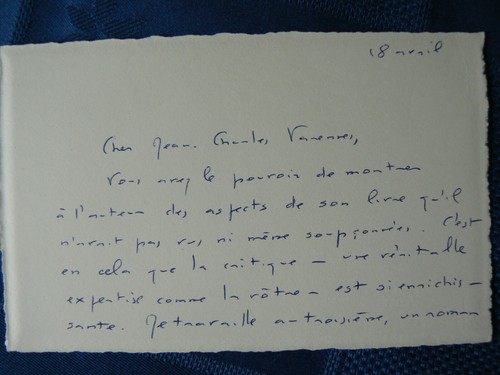 18 avril
Cher Jean-Charles Varennes,
Vous avez le pouvoir de montrer
à l'auteur des aspects de son livre qu'il
n'avait pas vus, ni même soupçonnés. C'est
en cela que la critique - une véritable
expertise comme la vôtre - est si enrichis-
sante. Je travaille au troisième, un roman